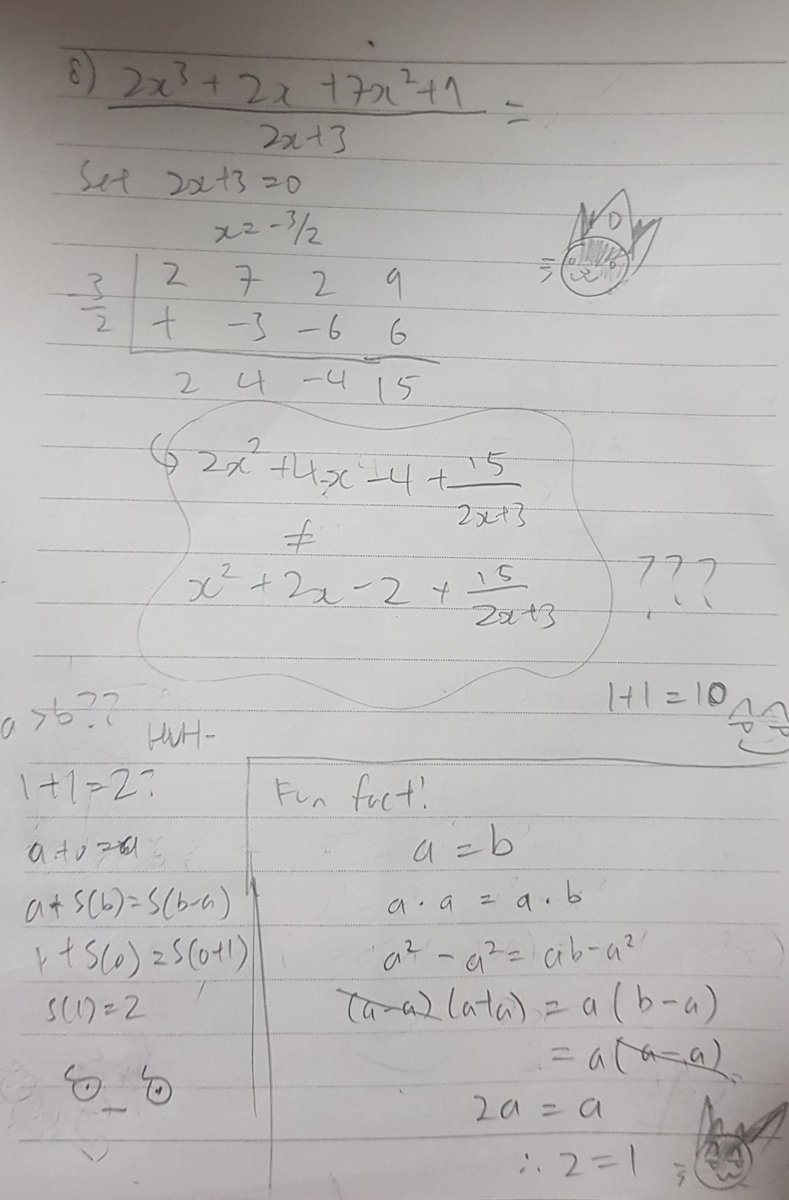 8) 2x³ + 2x + 7x² + 9 =
2x+3
Set 2x+3 = 0
x = -3/2
-3/2 | 2 7 2 9
+ -3 -6 6
2 4 -4 15
↳ 2x² + 4x - 4 + 15/2x+3
≠
x² + 2x - 2 + 15/2x+3 ???
1+1 = 10
a > b??
HUH-
1+1=2?
a+0=a
a+S(b)=S(b-a)
1+S(0)=S(0+1)
S(1)=2
Fun fact!
a = b
a · a = a · b
a² - a² = ab - a²
(a-a)(a+a) = a(b-a)
= a(a-a)
2a = a
∴ 2=1